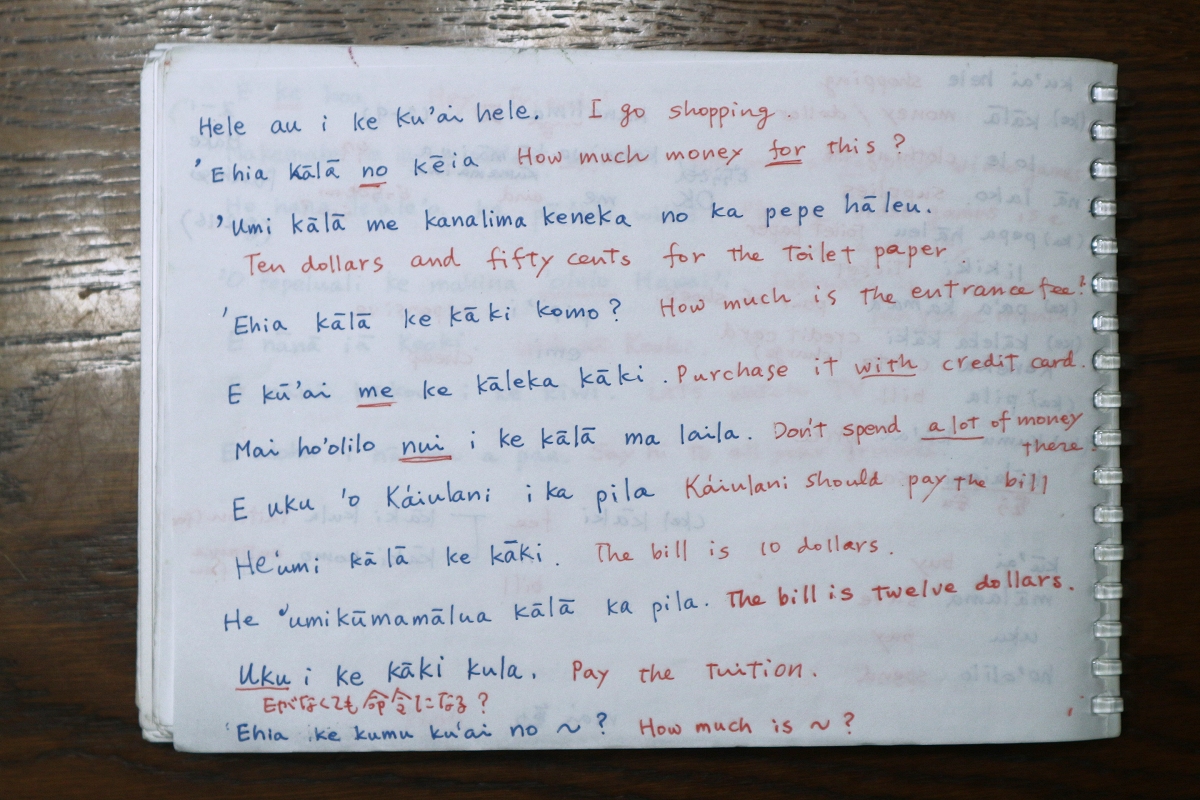 Hele au i ke ku'ai hele. I go shopping.
'Ehia kālā no kēia How much money for this?
'Umi kālā me kanalima keneka no ka pepe hāleu.
Ten dollars and fifty cents for the toilet paper.
'Ehia kālā ke kāki komo? How much is the entrance fee?
E kū'ai me ke kāleka kāki. Purchase it with credit card.
Mai ho'olilo nui i ke kālā ma laila. Don't spend a lot of money
there.
E uku 'o Káiulani i ka pila Káiulani should pay the bill
He 'umi kālā ke kāki. The bill is 10 dollars.
He 'umikūmamālua kālā ka pila. The bill is twelve dollars.
Uku i ke kāki kula. Pay the Tuition.
Eがなくても命令になる?
'Ehia ke kumu ku'ai no ~? How much is ~?